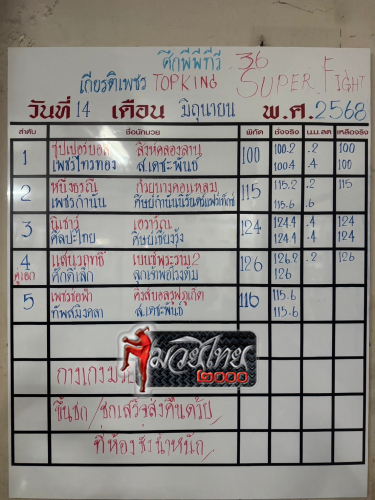 ศึกพีพีทีวี 36
เกียรติเพชร TOPKING SUPER FIGHT
วันที่ 14 เดือน มิถุนายน พ.ศ. 2568
ลำดับ ชื่อนักมวย พิกัด ชั่งจริง น.น.ลด เหลือจริง
1 ไฮเปอร์บอล สิงห์คลองลาน 100 100.2 .2 100
เพชรไทรทอง ส.เดชะพันธ์ 100.4 .4 100
2 หนึ่งธรณี 115 115.2 .2 115
เพชรกำนัน 115.6
3 เอวารัณ 124 124.4 .4 124
ศิลปะไทย ศิษย์เชียงรุ้ง 124.4 .4 124
4 แสนวฤทธิ์ เบนซ์พระราม2 126 126.2 .2 126
คู่เอก ศักดิ์เล็ก 126
5 เพชรช่อฟ้า 116 115.6
ทัพสมิงคลา ส.เดชะพันธ์ 115.6
มวยไทย
๒๐๐๐
กางเกงมวย
ขึ้นชก/ชกเสร็จส่งคืนด้วย
ที่ห้องชั่งน้ำหนัก